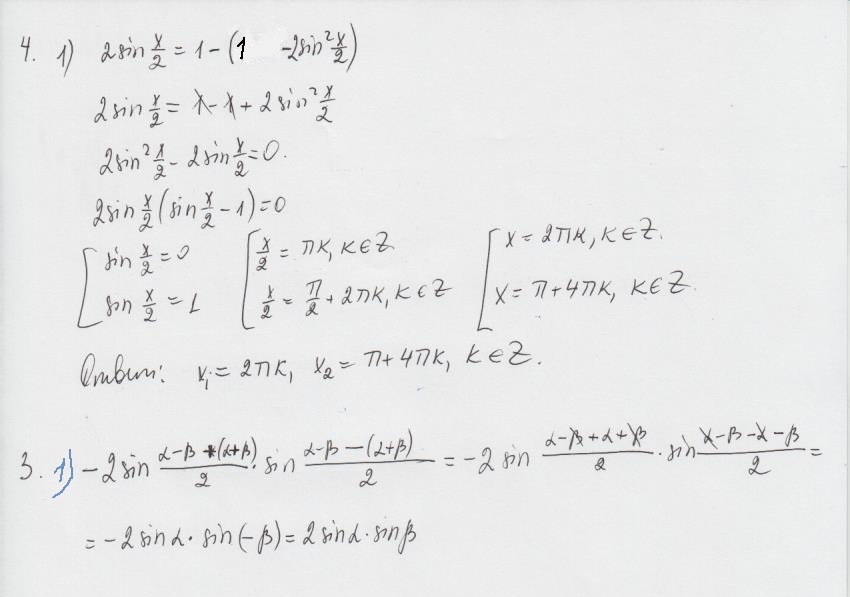 4. 1) 2sin x/2 = 1 - (1 -2sin² x/2)
2sin x/2 = 1 - 1 + 2sin² x/2
2sin² x/2 - 2sin x/2 = 0.
2sin x/2 (sin x/2 - 1) = 0
[ sin x/2 = 0 [ x/2 = πk, k ∈ Z [ x = 2πk, k ∈ Z.
sin x/2 = 1 x/2 = π/2 + 2πk, k ∈ Z x = π + 4πk, k ∈ Z
Ответ: x₁ = 2πk, x₂ = π + 4πk, k ∈ Z.
3. 1) -2 sin (α-β+(α+β))/2 · sin (α-β-(α+β))/2 = -2 sin (α-β+α+β)/2 · sin (α-β-α-β)/2 =
= -2 sinα · sin(-β) = 2 sinα · sinβ